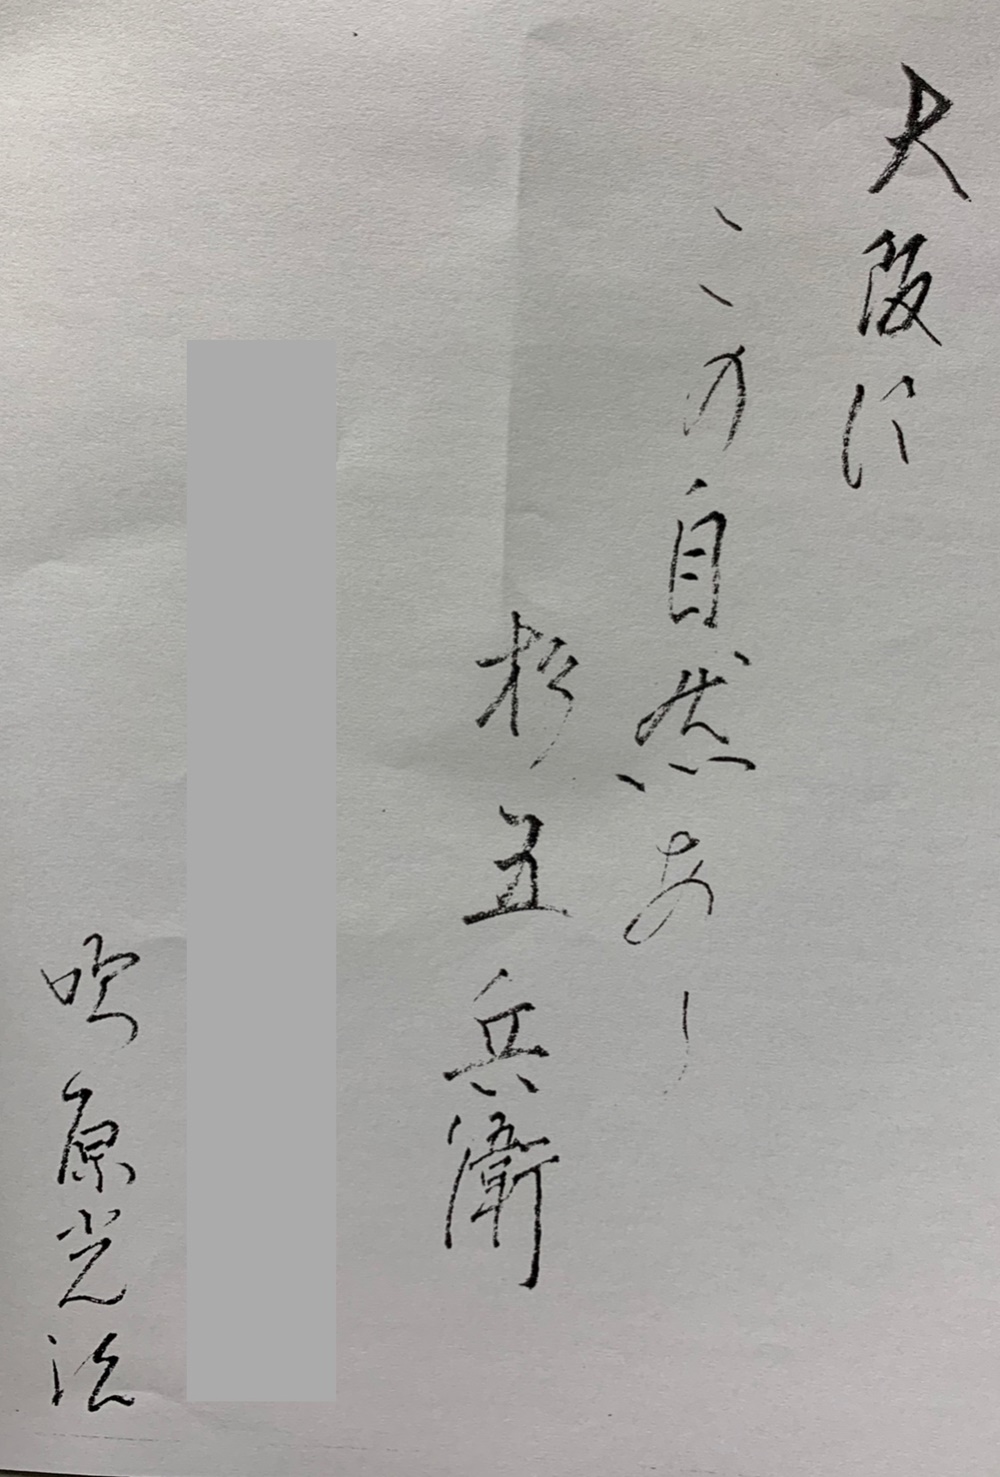 大阪に
この自然あり
杉五兵衛
吹原光法